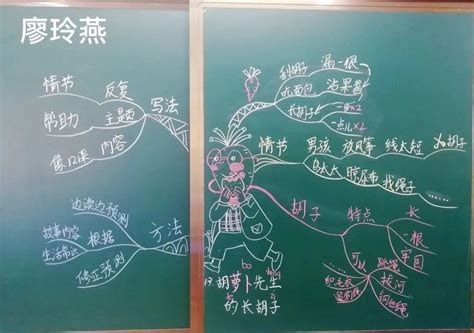 廖玲燕
情节 反复
帮助 主题 写法
像12课 内容
边读边预测
故事内容 根据 方法
生活常识
修正预测
刮胡子 漏一根
吃面包 沾果酱
长胡子 一变×2
一点儿×2
情节 男孩 放风筝 线太短
鸟太太 晾尿布 找绳子
胡子 特点 长
一根
牢固
可以 跳绳
织毛衣 拔河
钢丝绳
bo bo
13.胡萝卜先生
的长胡子